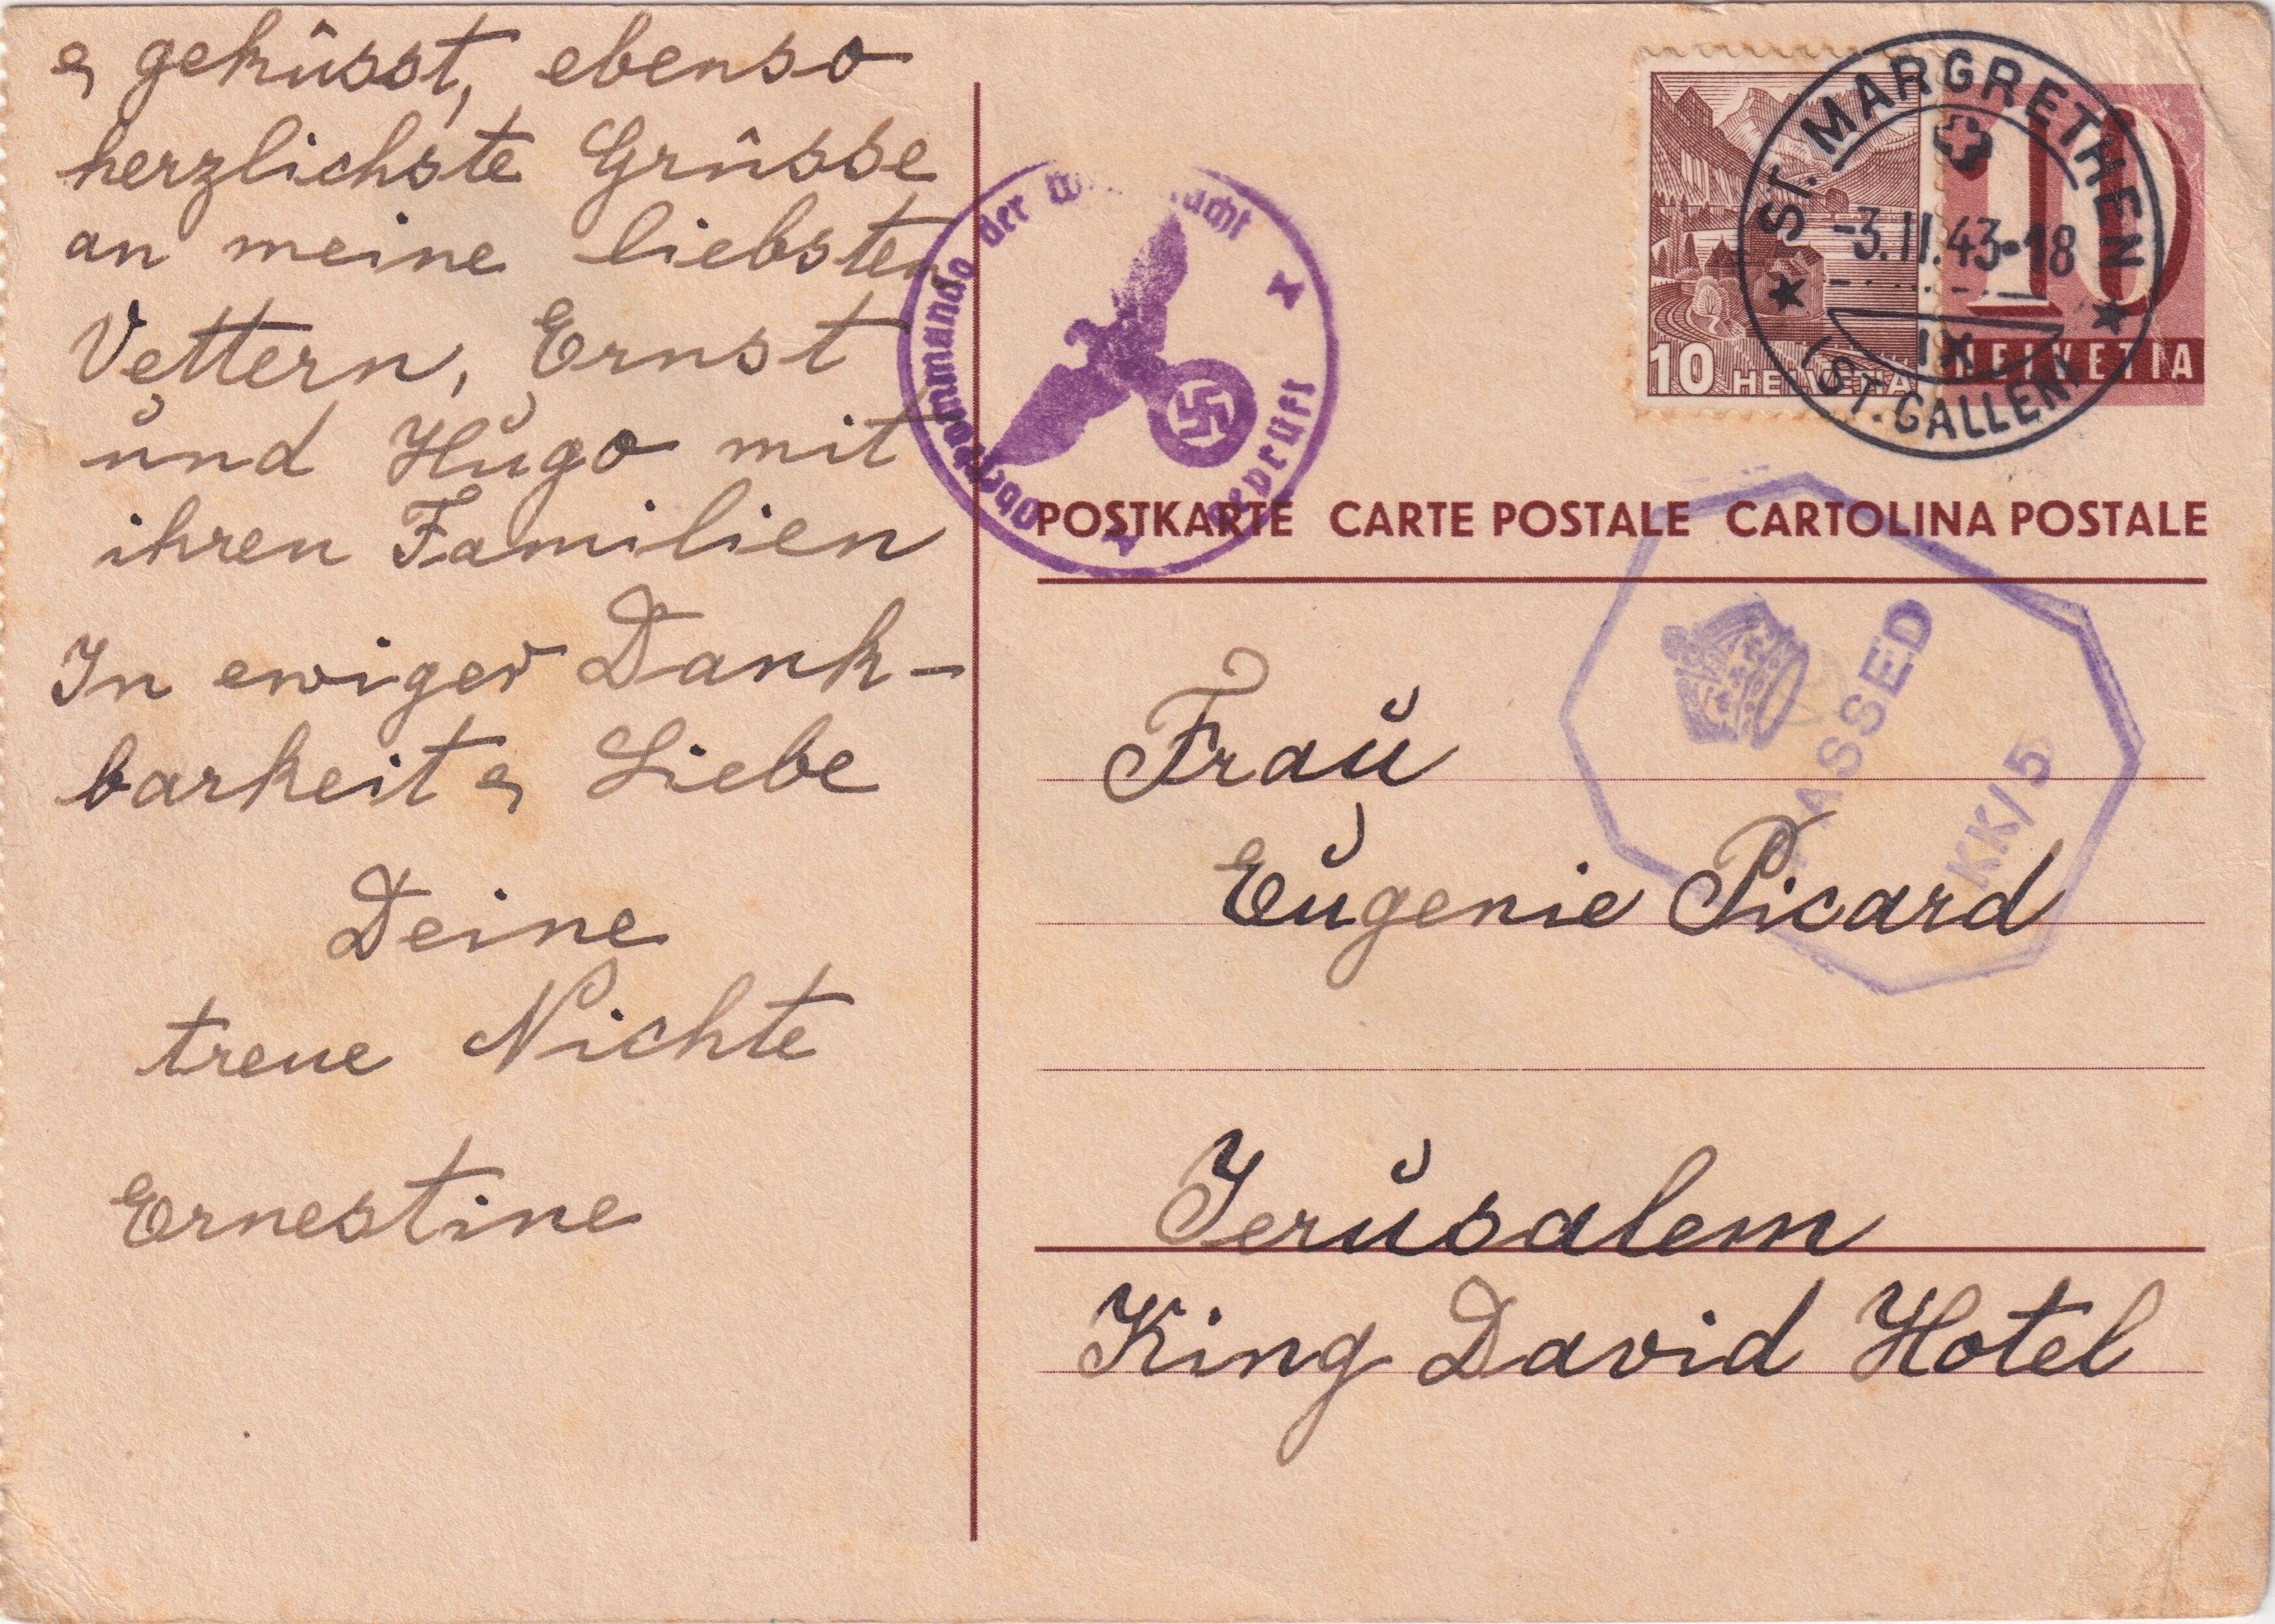 & geküsst, ebenso
herzlichste Grüsse
an meine liebsten
Vettern, Ernst
und Hugo mit
ihren Familien
In ewiger Dank-
barkeit & Liebe
Deine
treue Nichte
Ernestine
Oberkommando der
geprüft
10 HELVETIA
10
HELVETIA
ST. MARGRETHEN
-3.II.43-18
IX
(ST. GALLEN)
POSTKARTE CARTE POSTALE CARTOLINA POSTALE
PASSED
KK/5
Frau
Eugenie Picard
Jerusalem
King David Hotel